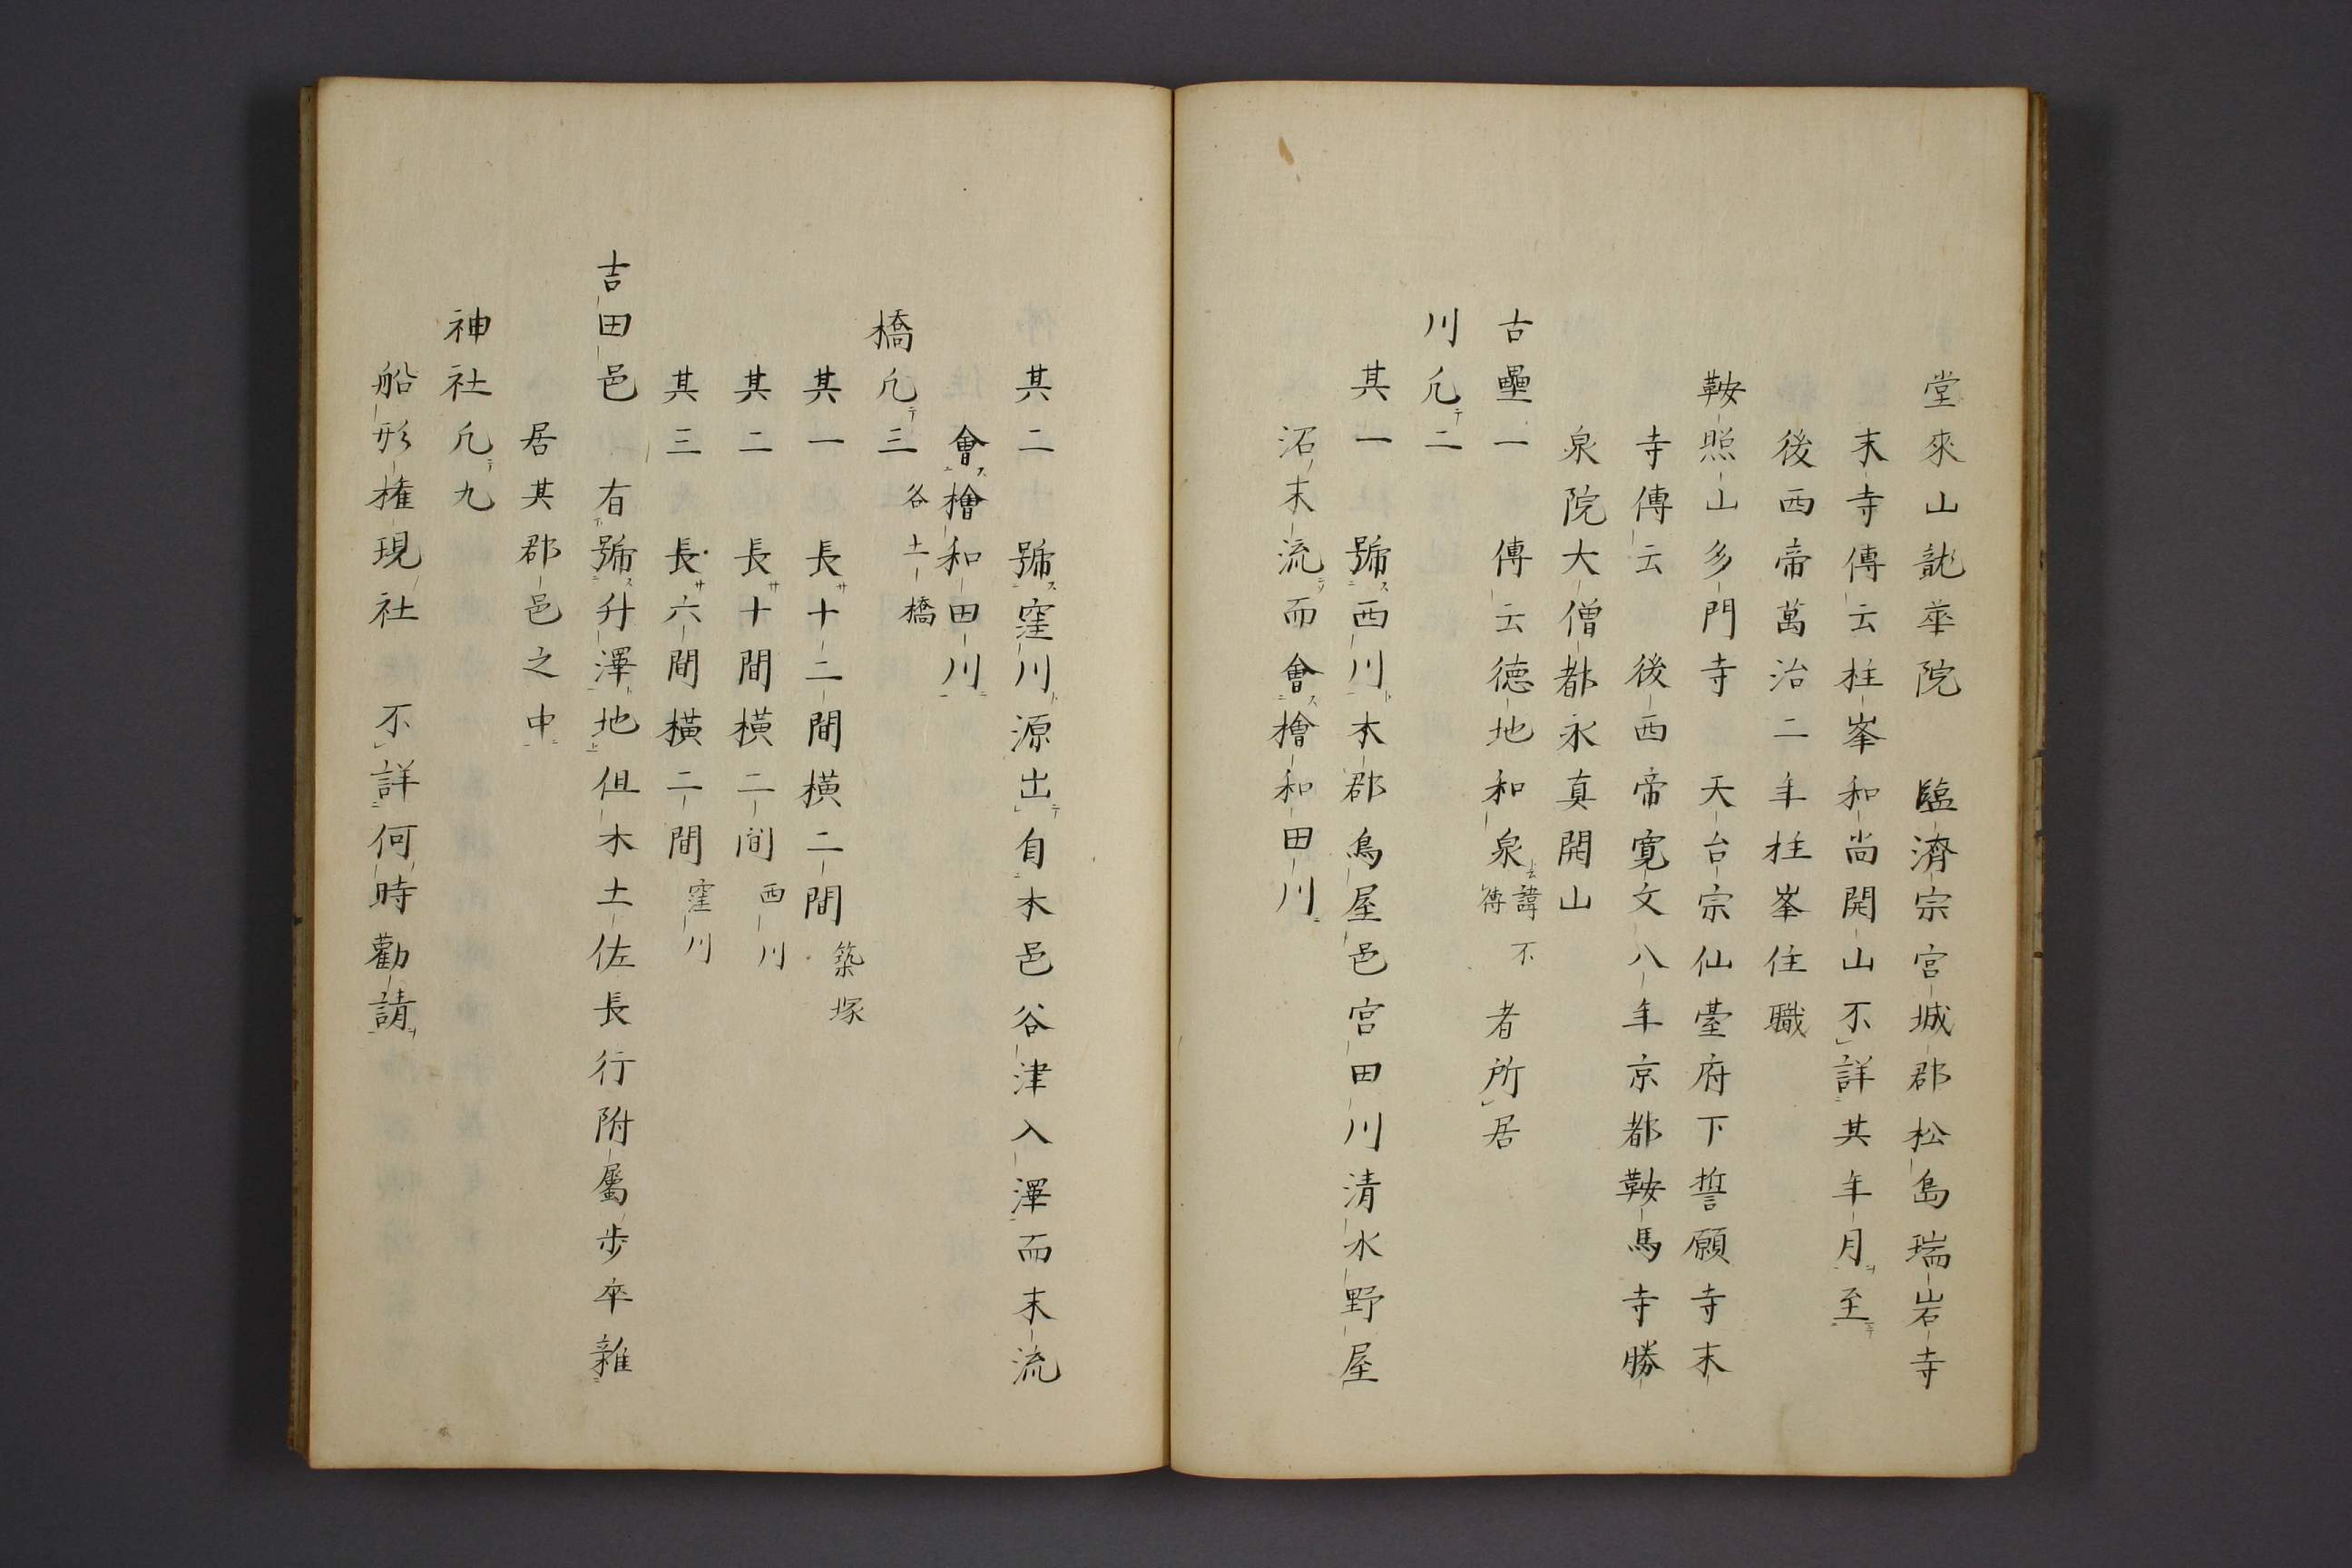 堂來山龍華院　臨濟宗宮城郡松島瑞岩寺
末寺傳云柱峯和尚開山不詳其年月至
後西帝萬治二年柱峯住職
鞍照山多門寺　天台宗仙臺府下誓願寺末
寺傳云　後西帝寛文八年京都鞍馬寺勝
泉院大僧都永真開山
古壘一　傳云徳地和泉諱不傳者所居
川凢二
其一　號西川本郡鳥屋邑宮田川清水野屋
沼末流而會檜和田川
其二　號窪川源出自本邑谷津入澤而末流
會檜和田川
橋凢三　各土橋
其一　長十二間横二間　築塚
其二　長十間横二间　西川
其三　長六間横二間　窪川
吉田邑　有號升澤地但木土佐長行附屬歩卒雜
居其郡邑之中
神社凢九
船形権現社　不詳何時勸請